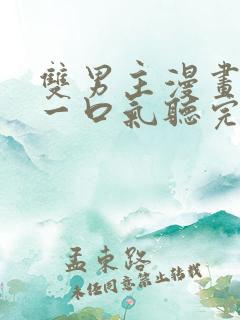 雙男主漫畫
一口氣聽完
孟東路
未經同意禁止轉載